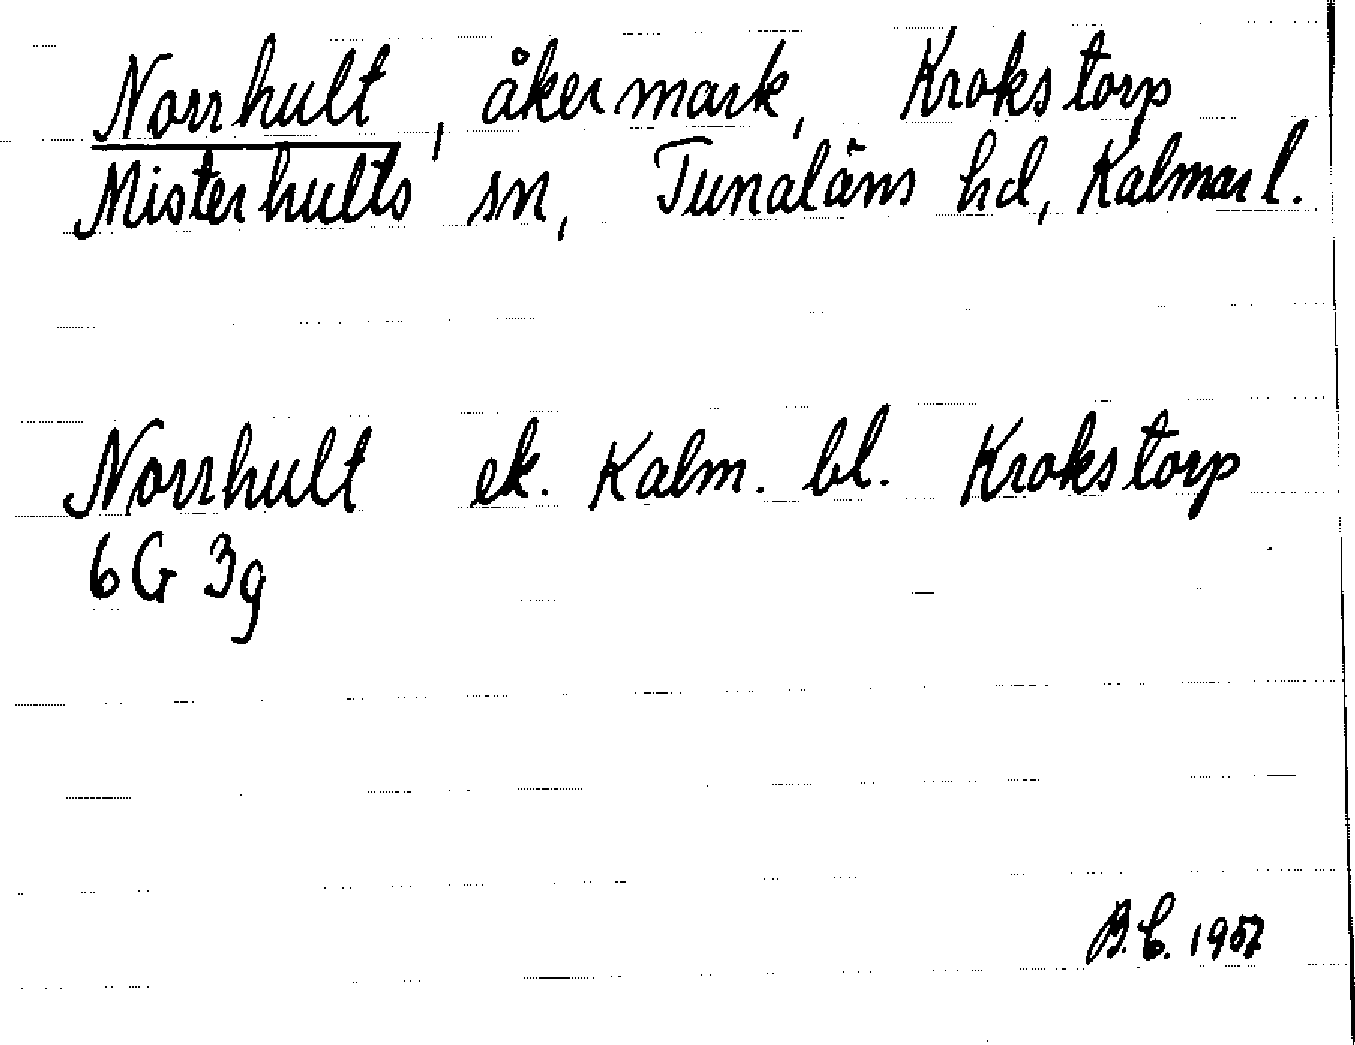 Norrhult, åkermark, Krokstorp
Misterhults sn, Tunaläns hd, Kalmar l.
Norrhult ek. Kalm. bl. Krokstorp
6G 3g
B.C. 1957